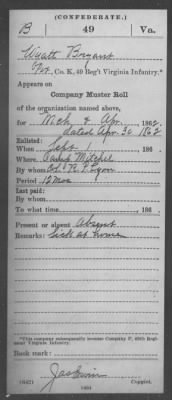 (CONFEDERATE.)
B 49 Va.
Wyatt Bryant
Pvt, Co. K, 49 Reg't Virginia Infantry.*
Appears on
Company Muster Roll
of the organization named above,
for Mch & Apr, 1862
dated Apr. 30 1862
Enlisted:
When Sept. 1, 186
Where Camp Mitchel
By whom Col. R. T. Lyon
Period 12 Mos
Last paid:
By whom
To what time , 186
Present or absent Absent
Remarks: Sick at home
*This company subsequently became Company , 49th Regiment Virginia Infantry.
Book mark:
Jas Ewin
(642) Copyist.